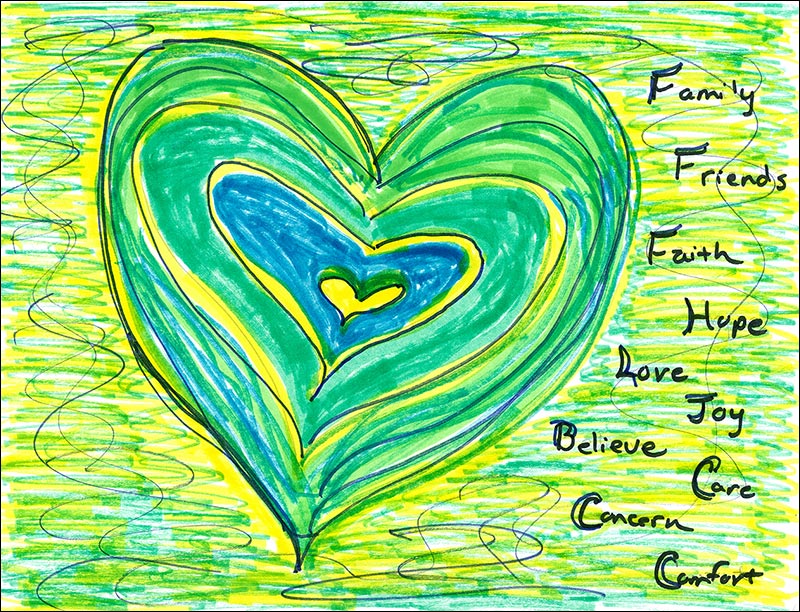 Family
Friends
Faith
Hope
Love
Joy
Believe
Care
Concern
Comfort